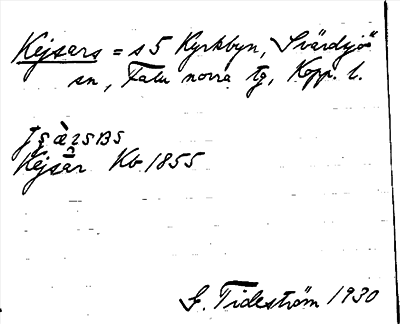 Kejsars = s 5 Kyrkbyn, Svärdsjö
sn, Falu norra tg, Kopp. l.
Kejsar Kb 1855
G. Tideström 1930